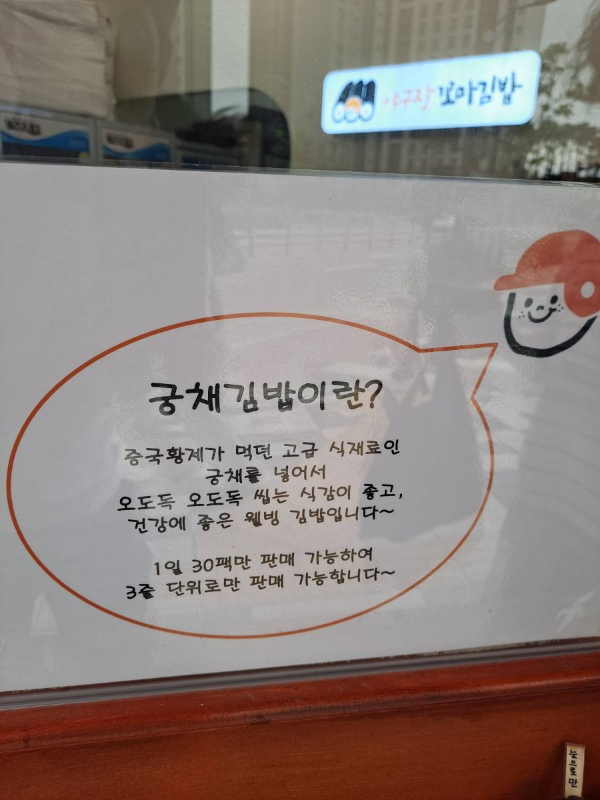 야구장 꼬마김밥
궁채김밥이란?
중국황제가 먹던 고급 식재료인
궁채를 넣어서
오도독 오도독 씹는 식감이 좋고,
건강에 좋은 웰빙 김밥입니다~
1일 30팩만 판매 가능하여
3줄 단위로만 판매 가능합니다~
눈으로만